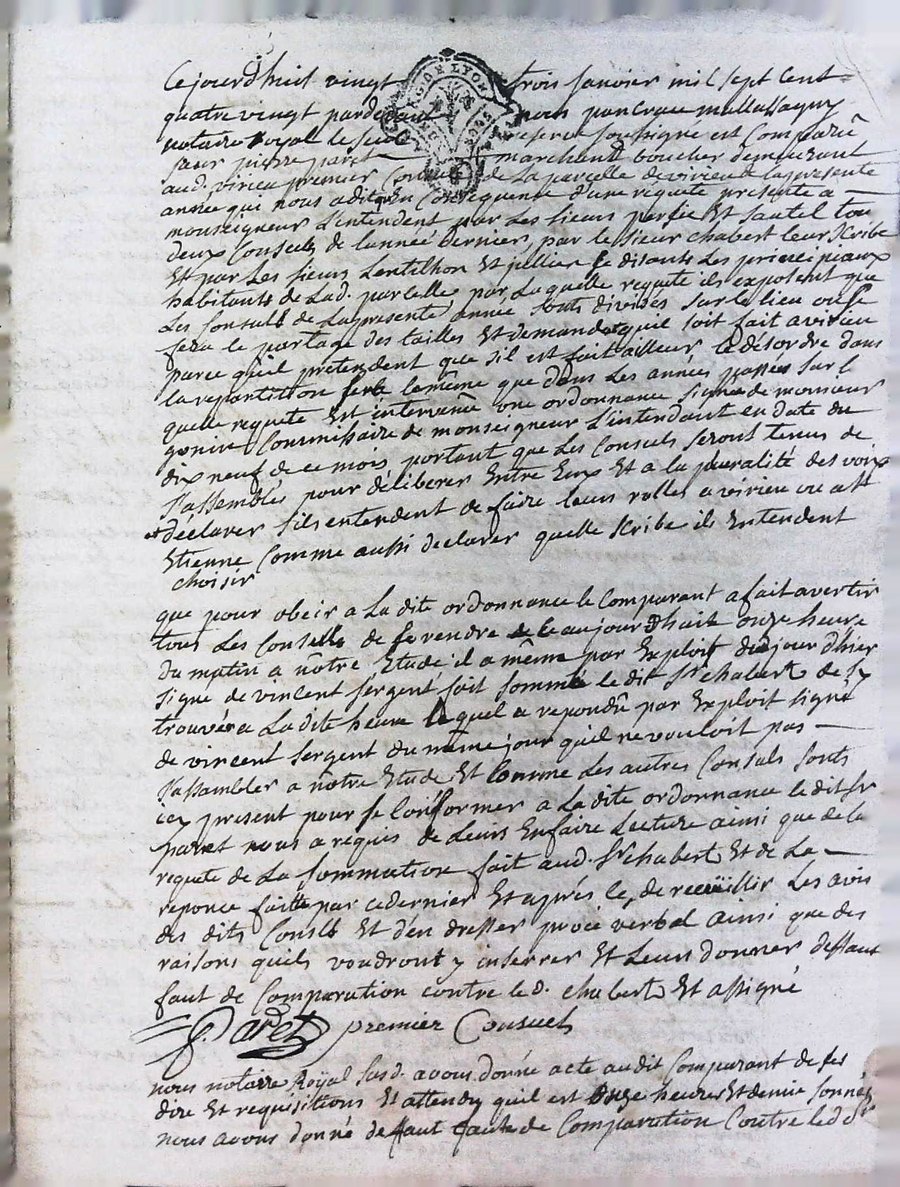 Ce jourd'huit vingt trois Janvier mil sept cent
quatre vingt pardevant nous pancrace mallassagny
notaire royal reservé soussigné est comparû
sieur pierre paret marchand boucher demeurant
aud. virieu premier Consul de La parcelle de virieu la presente
année qui nous a dit qu'en Consequence d'une requete presenté a
monseigneur L'intendent par Les sieurs perfie Et sautel tou
deux Consuls de lannée derniere, par le sieur chabert leur scribe
Et par Les sieurs Lentilhon Et jullien se disants Les principeaux
habitants de Lad. parcelle, par Laquelle requete ils exposent que
Les Consuls de La presente année sont divisés sur le lieu ou se
fera le partage des tailles Et demande quil soit fait a virieu
parce quil pretendent que sil est fait ailleur le desordre dans
la repartition sera la même que dans Les années passés sur l
quelle requete Est intervenüe une ordonnance signée de monsieur
gonin Commissaire de monseigneur L'intendant en date du
dix neuf de ce mois, portant que Les Consuls seront tenus de
s'assembles pour déliberer Entre Eux Et a la pluralité des voix
déclarer sils entendent de faire leurs rolles a virieu ou a st
Etienne Comme aussi declarer quelle scribe ils Entendent
choisir
que pour obeir a La dite ordonnance le Comparant a fait avertir
tous Les Consulls de se rendre aujourdhuit onze heure
du matin a nôtre Etude il a même par Exploit du jour d'hier
signé de vincent sergent fait sommé le dit sr chabert de sy
trouver a La dite heure le quel a repondû par Exploit signé
de vincent sergent du même jour quil ne vouloit pas
s'assembler a nôtre Etude Et Comme Les autres Consuls sonts
icy present pour se Conformer a La dite ordonnance le dit sr
paret nous a requis de Leurs En faire Lecture ainsi que de la
requete de La sommation fait aud. sr chabert Et de La
reponce faitte par ce dernier Et après ce, de recüillir Les avis
des dits Consls Et d'en dresser procé verbal ainsi que des
raisons quels voudront y inserrer Et Leur donner deffaut
faut de Comparation contre led. chabert Et assigné
p. paret premier Consuel
nous notaire Royal susd. avons donné acte audit Comparant de ses
dire Et requisitions Et attendu quil est onze heures Et demie sonnés
nous avons donné deffaut faute de Comparation Contre led. sr